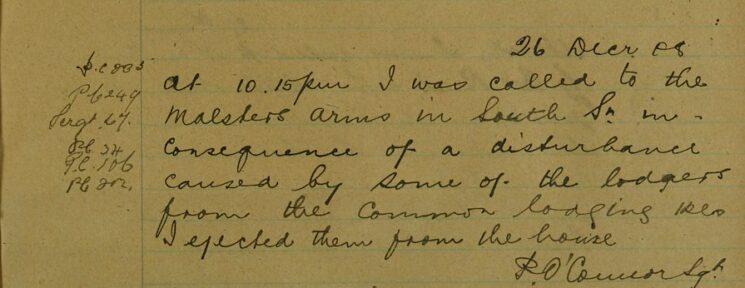 26 Decr. 08
P.C 223
P.C 249
Sergt. 67.
P.C. 34
P.C. 106
P.C 202.
At 10.15pm I was called to the
Malsters Arms in South St in-
consequence of a disturbance
caused by some of the lodgers
from the Common lodging
I ejected them from the house
P. O'Connor Sgt.